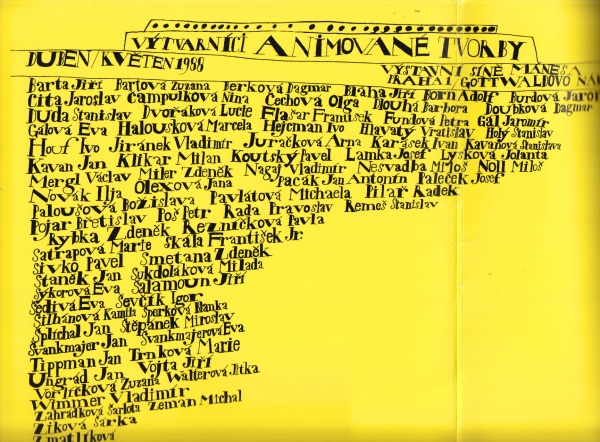 VÝTVARNÍCI ANIMOVANÉ TVORBY
DUBEN/KVĚTEN 1988
VÝSTAVNÍ SÍNĚ MÁNESA
PRAHA 1/GOTTWALDOVO
Barta Jiří Bartová Zuzana Berková Dagmar Bláha Jiří Born Adolf Burdová
Cita Jaroslav Čampulková Nina Čechová Olga Dlouhá Barbora Doubková Dagmar
Duda Stanislav Dvořáková Lucie Elsař František Fundová Petra Gál Jaromír
Gálová Eva Halousková Marcela Hejcman Ivo Hlavatý Vratislav Holý Stanislav
Houf Ivo Jiránek Vladimír Juračková Arna Karásek Ivan Kavanová Stanislava
Kavan Jan Klikar Milan Koutský Pavel Lamka Josef Lysková Jolanta
Mergl Václav Miler Zdeněk Nagaj Vladimír Nesvadba Miloš Noll Miloš
Novák Ilja Olexová Jana Pacák Jan Antonín Paleček Josef
Paloušová Božislava Pavlátová Michaela Pilař Radek
Pojar Břetislav Poš Petr Rada Pravoslav Remeš Stanislav
Rybka Zdeněk Řezníčková Pavla
Satrapová Marie Skála František Jr.
Sivko Pavel Smetana Zdeněk
Staněk Jan Sukdoláková Milada
Sýkorová Eva Šalamoun Jiří
Šedivá Eva Ševčík Igor
Šilhánová Kamila Šperková Blanka
Šplíchal Jan Štěpánek Miroslav
Švankmajer Jan Švankmajerová Eva
Tippman Jan Trnková Marie
Ungrád Jan Vojta Jiří
Vorlíčková Zuzana Walterová Jitka
Wimmer Vladimír
Zahrádková Šarlota Zeman Michal
Zíková Šárka
Zmatlíková